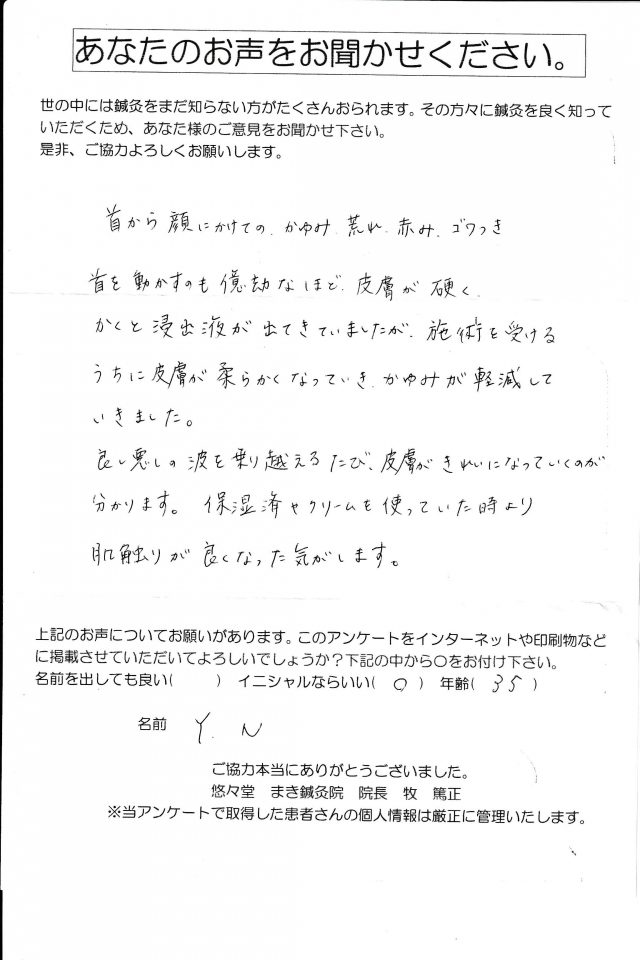 あなたのお声をお聞かせください。
世の中には鍼灸をまだ知らない方がたくさんおられます。その方々に鍼灸を良く知って
いただくため、あなた様のご意見をお聞かせ下さい。
是非、ご協力よろしくお願いします。
首から顔にかけての、かゆみ、荒れ、赤み、ゴワつき
首を動かすのも億劫なほど、皮膚が硬く、
かくと浸出液が出てきていましたが、施術を受ける
うちに皮膚が柔らかくなっていき、かゆみが軽減して
いきました。
良し悪しの波を乗り越えるたび、皮膚がきれいになっていくのが
分かります。保湿済やクリームを使っていた時より
肌触りが良くなった気がします。
上記のお声についてお願いがあります。このアンケートをインターネットや印刷物など
に掲載させていただいてよろしいでしょうか？下記の中から○をお付け下さい。
名前を出しても良い(　　) イニシャルならいい( ○ ) 年齢( 35 )
名前 Y. N
ご協力本当にありがとうございました。
悠々堂 まき鍼灸院 院長 牧 篤正
※当アンケートで取得した患者さんの個人情報は厳正に管理いたします。